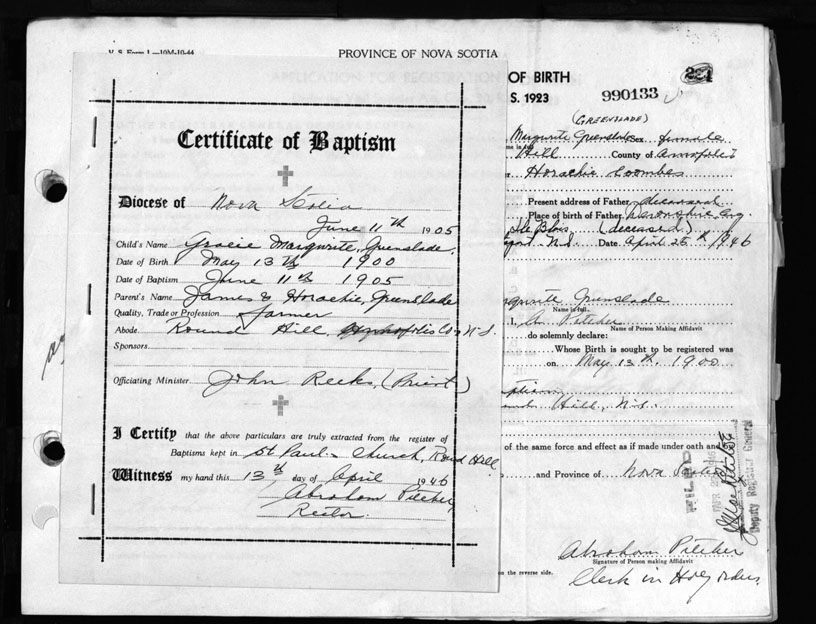 PROVINCE OF NOVA SCOTIA
OF BIRTH
S. 1923
990133
(GREENSLADE)
Certificate of Baptism
Diocese of Nova Scotia
June 11th 1905
Child's Name Gracie Margurite, Grenslade.
Date of Birth May 13th 1900
Date of Baptism June 11th 1905
Parent's Name James & Horachie, Grenslade
Quality, Trade or Profession farmer
Abode Round Hill, Annapolis Co N.S.
Sponsors
Officiating Minister John Reeks, (Priest)
I Certify that the above particulars are truly extracted from the register of
Baptisms kept in St Paul's Church, Round Hill
Witness my hand this 13th day of April 1946
Abraham Pilcher
Rector.
Margurite Grenslade Sex female
Hill County of Annapolis
Horachie Coombes
Present address of Father deceased
Place of birth of Father, Devonshire Eng.
(deceased)
N.S. Date April 25th 1946
Grenslade
Name in full.
Name of Person Making Affidavit
do solemnly declare:
Whose Birth is sought to be registered was
on May 13th, 1900
Hill, N.S.
of the same force and effect as if made under oath and
and Province of Nova Scotia
FILED
Deputy Registrar General
Abraham Pilcher
Signature of Person making Affidavit
on the reverse side.
Clerk in Holy orders